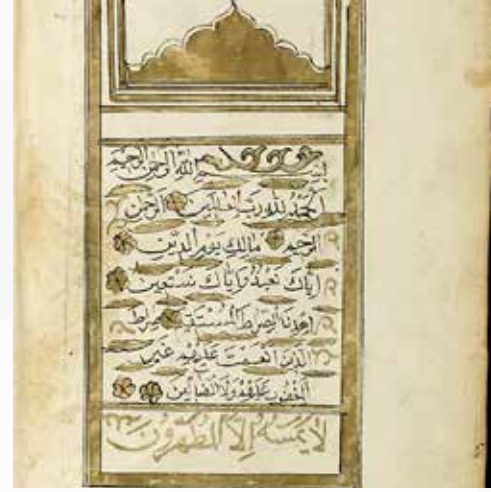 بسم الله الرحمن الرحيم
الحمد لله رب العالمين الرحمن
الرحيم مالك يوم الدين
اياك نعبد واياك نستعين
اهدنا الصراط المستقيم صراط
الذين انعمت عليهم غير
المغضوب عليهم ولا الضالين
لا يمسه الا المطهرون